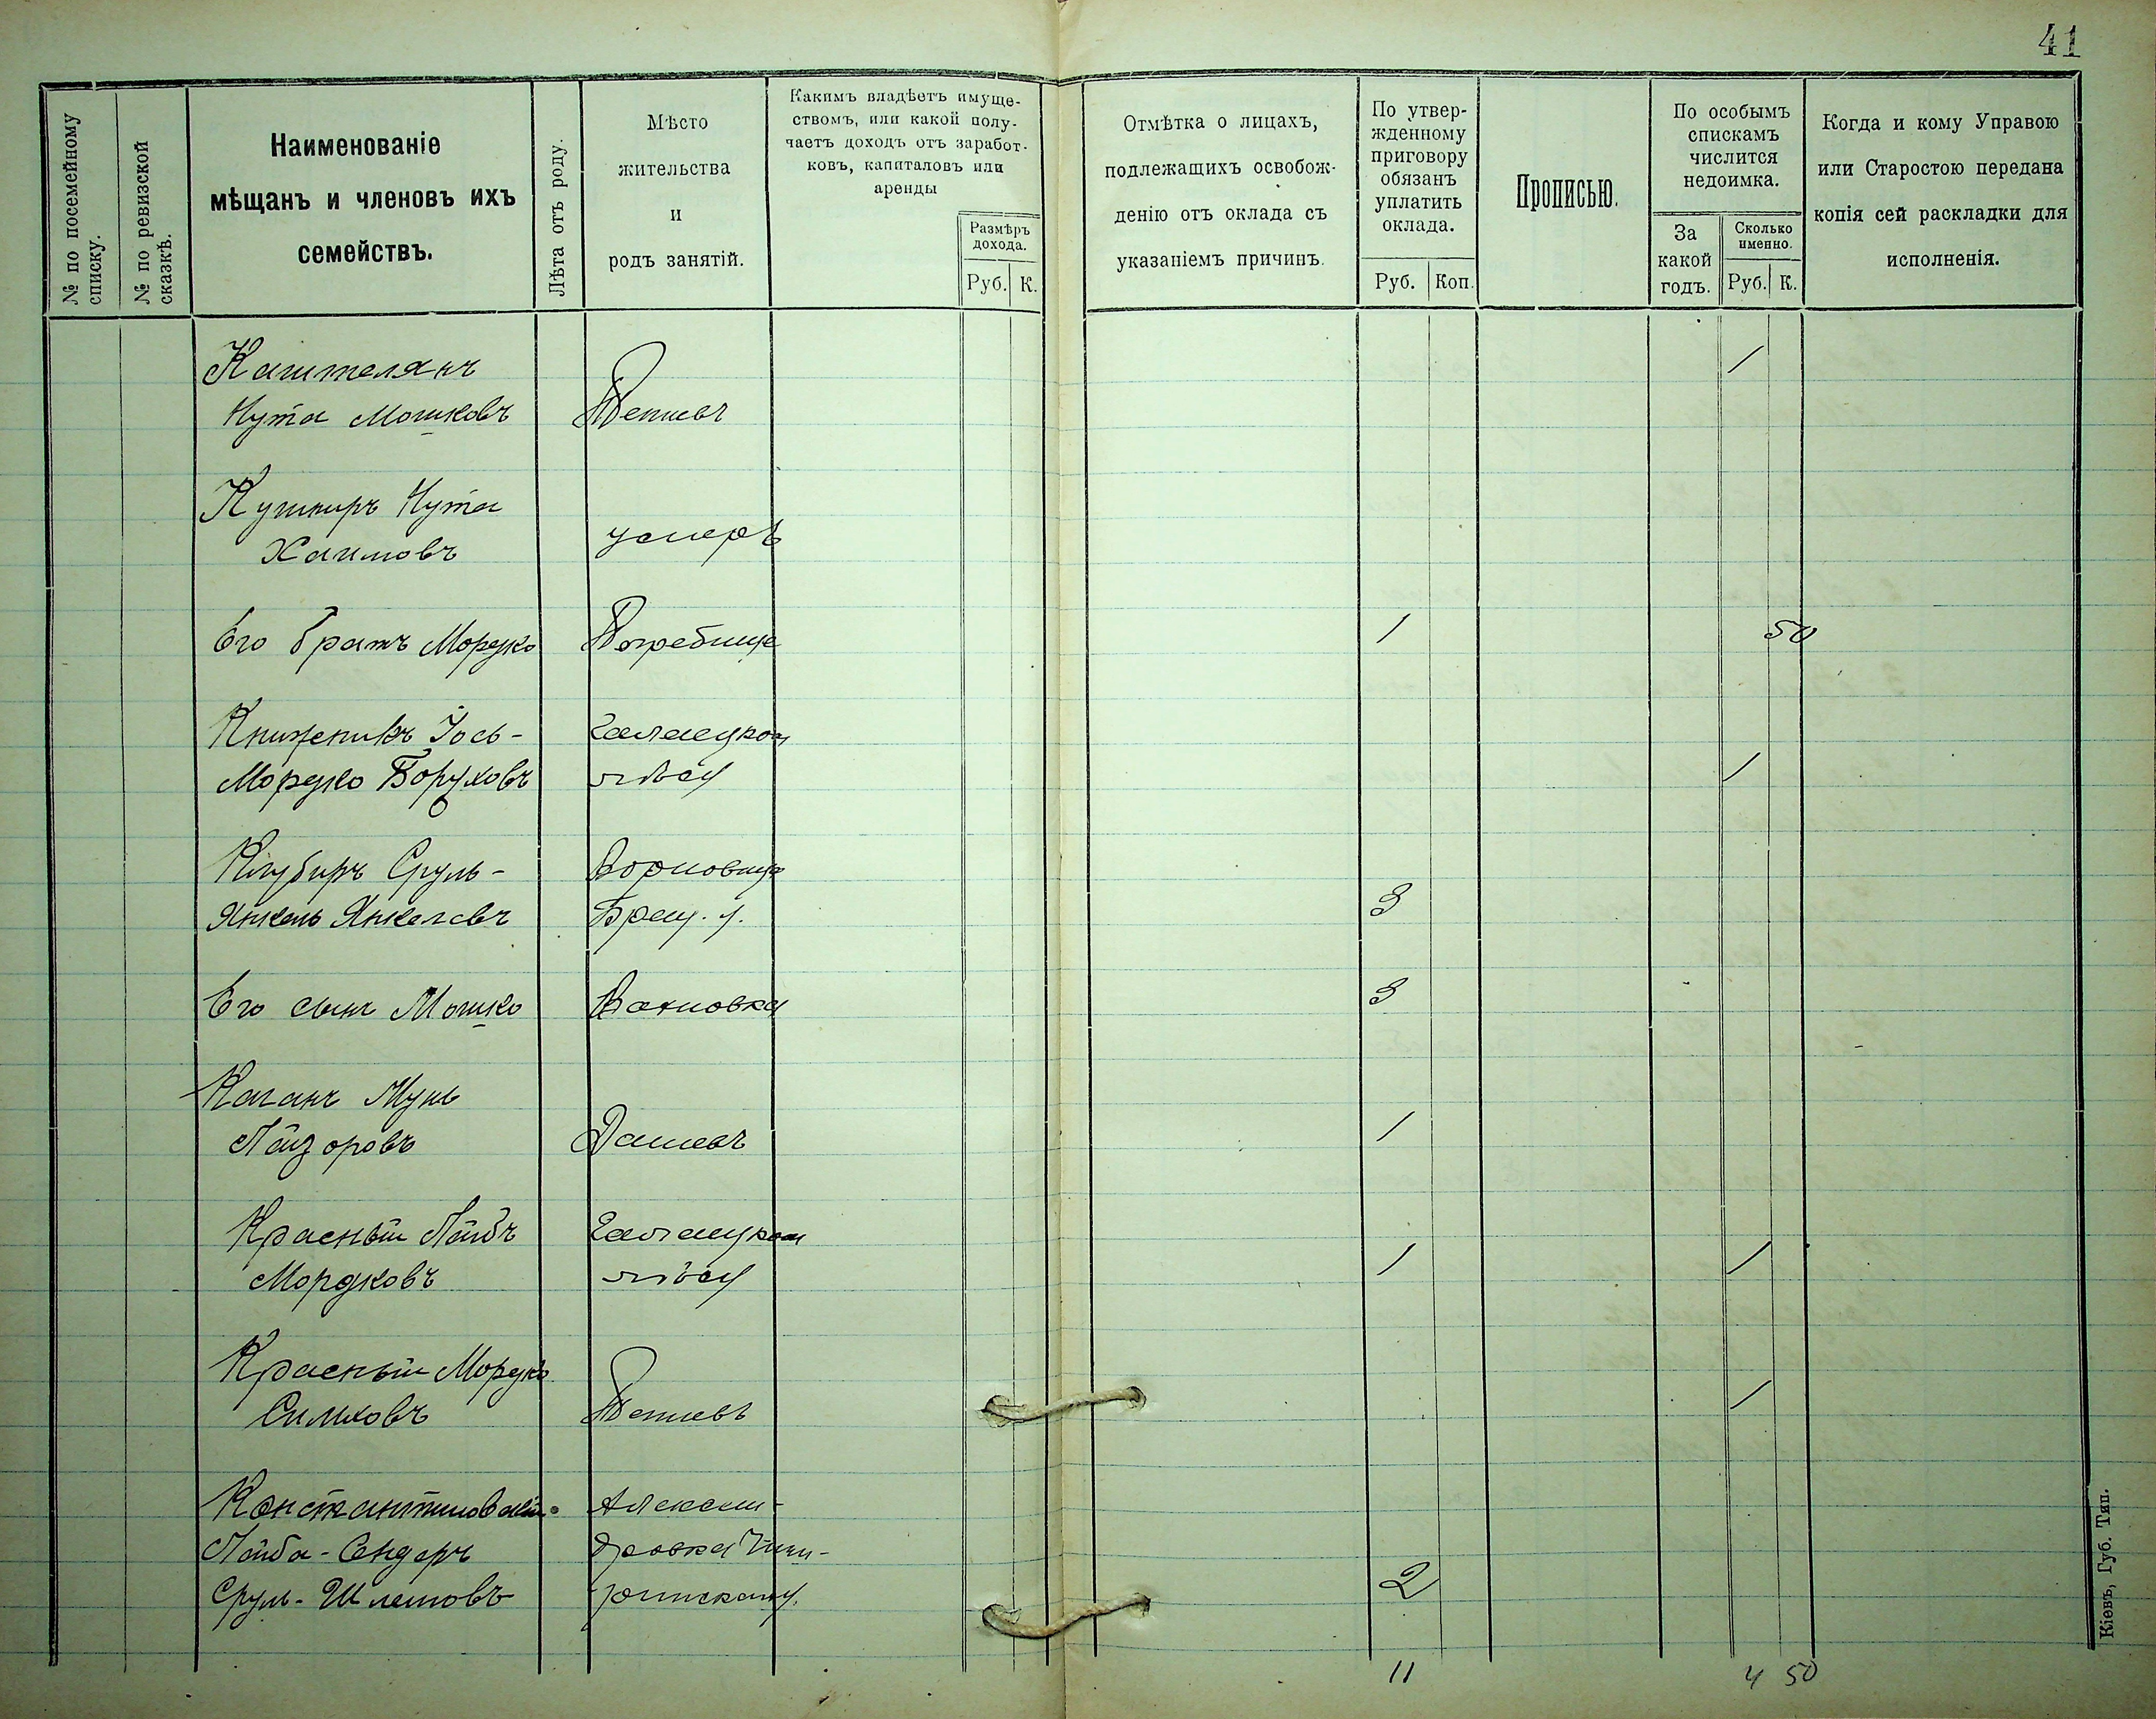 41
№ по посемейному
списку.
№ по ревизской
сказкѣ.
Наименованіе
мѣщанъ и членовъ ихъ
семействъ.
Лѣта отъ роду.
Мѣсто
жительства
и
родъ занятій.
Какимъ владѣетъ имуще-
ствомъ, или какой полу-
чаетъ доходъ отъ заработ-
ковъ, капиталовъ или
аренды
Размѣръ
дохода.
Руб. К.
Отмѣтка о лицахъ,
подлежащихъ освобож-
денію отъ оклада съ
указаніемъ причинъ.
По утвер-
жденному
приговору
обязанъ
уплатить
оклада.
Руб. Коп.
Прописью.
По особымъ
спискамъ
числится
недоимка.
За
какой
годъ.
Сколько
именно.
Руб. К.
Когда и кому Управою
или Старостою передана
копія сей раскладки для
исполненія.
Кашителянъ 1
Нута Мошковъ
Кушниръ Нута
Хаимовъ умеръ
Его братъ Мордко Погребище 1 50
Книжникъ Іось-
Мордко Боруховъ 1
Сруль-
Янкель Янкелевъ 3
Его сынъ Мошко Вахновка 3
Каганъ
Лейзоровъ Дашевъ 1
Красный Лейбъ
Мордковъ 1 1
Красный Мордко
Симховъ 1
Константиновскій
Лейба-Сендеръ
Сруль-Шлемовъ 2
11 4 50
Кіевъ, Губ. Тип.